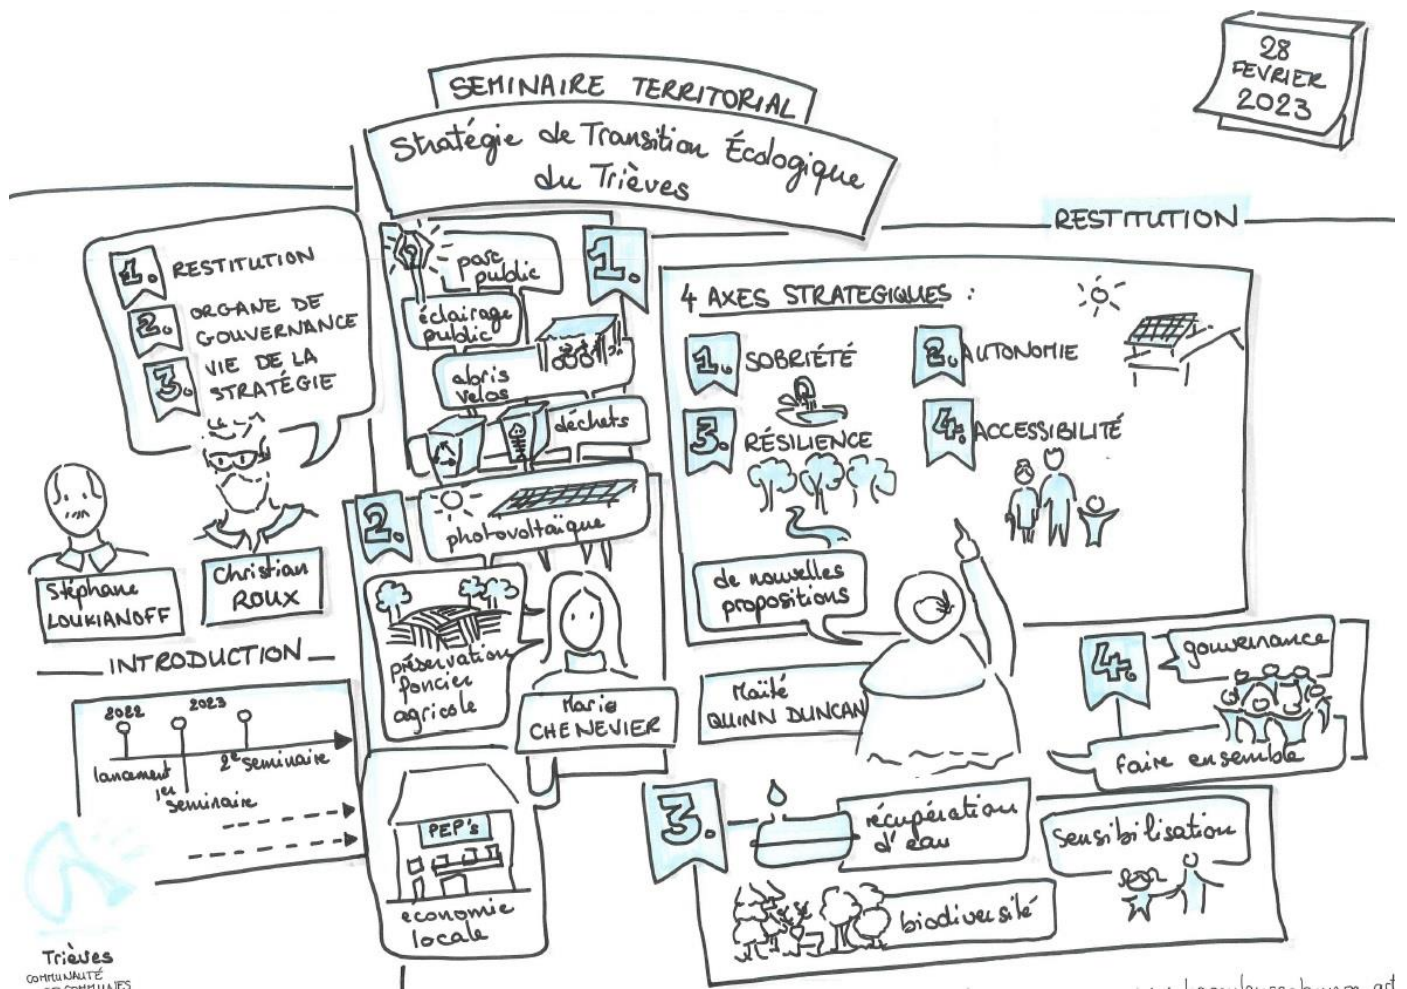 28
FEVRIER
2023
SEMINAIRE TERRITORIAL
Stratégie de Transition Écologique
du Trièves
RESTITUTION
1. RESTITUTION
2. ORGANE DE
GOUVERNANCE
3. VIE DE LA
STRATÉGIE
Stéphane
LOUKIANOFF
Christian
ROUX
INTRODUCTION
2022
2023
lancement
1er
seminaire
2e seminaire
Trièves
COMMUNAUTÉ
DE COMMUNES
1.
parc
public
éclairage
public
abris
velos
déchets
2.
photovoltaïque
préservation
foncier
agricole
Marie
CHENEVIER
PEP's
economie
locale
4 AXES STRATEGIQUES :
1. SOBRIÉTÉ
2. AUTONOMIE
3. RÉSILIENCE
4. ACCESSIBILITÉ
de nouvelles
propositions
Maïté
QUINN DUNCAN
4.
gouvernance
faire ensemble
3.
récupération
d'eau
sensibilisation
biodiversité